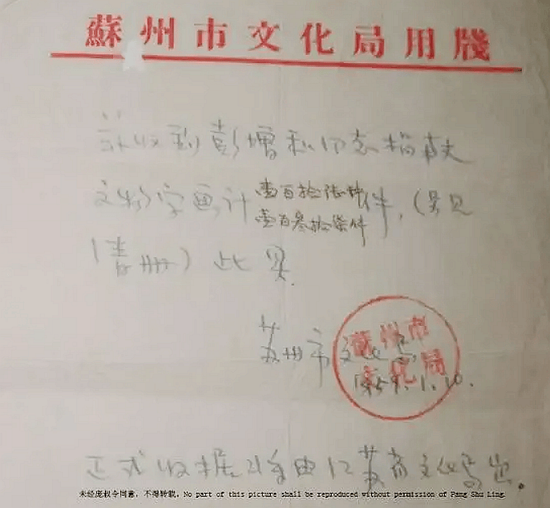 蘇州市文化局用牋
兹收到彭增和同志捐献
文物字画计 件,(另见
壹百叁拾柒件
清册)此据.
苏州市文化局
蘇州市
文化局
1959.1.10.
正式收据将由江苏省文化局出.
未经庞叔令同意,不得转载。No part of this picture shall be reproduced without permission of Pang Shu Ling.